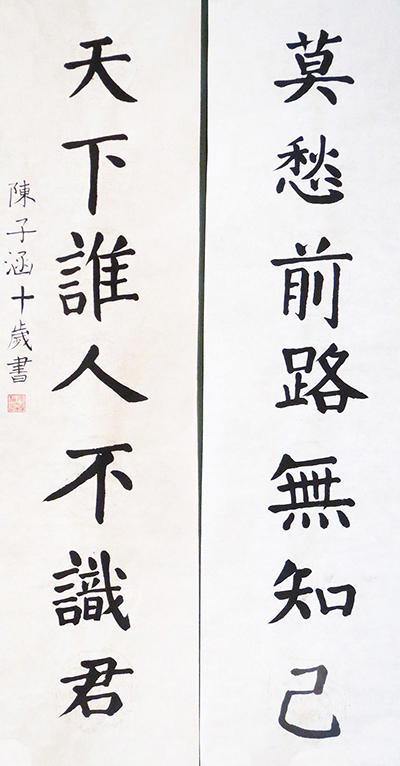 莫愁前路無知己
天下誰人不識君
陳子涵十歲書